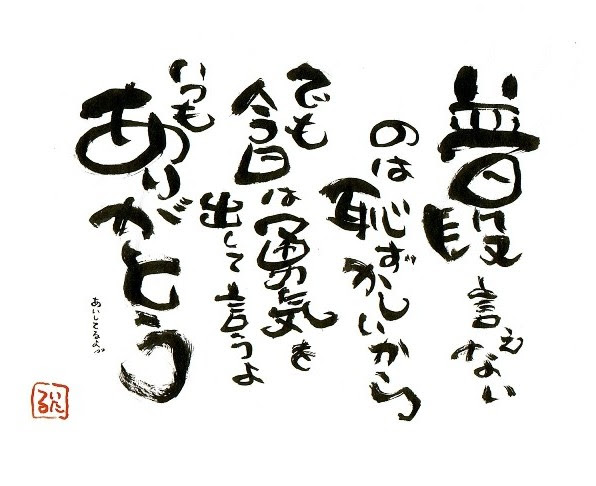 普段言えない
のは恥ずかしいから
でも今日は勇気を
出して言うよ
いつも
ありがとう
あいしてるよ